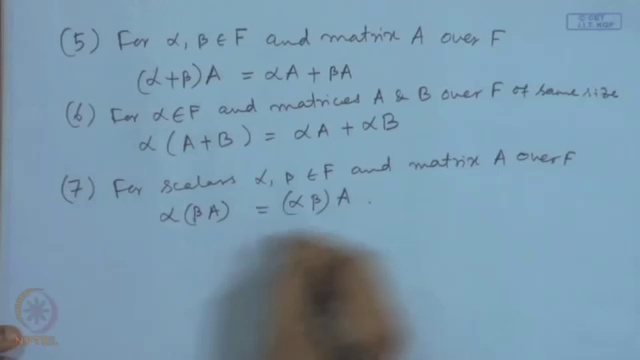 (5) For α, β ∈ F and matrix A over F
(α+β)A = αA + βA
(6) For α ∈ F and matrices A & B over F of same size
α (A+B) = αA + αB
(7) For scalars α, β ∈ F and matrix A over F
α(βA) = (αβ)A .
© CET
I.I.T. KGP
NPTEL